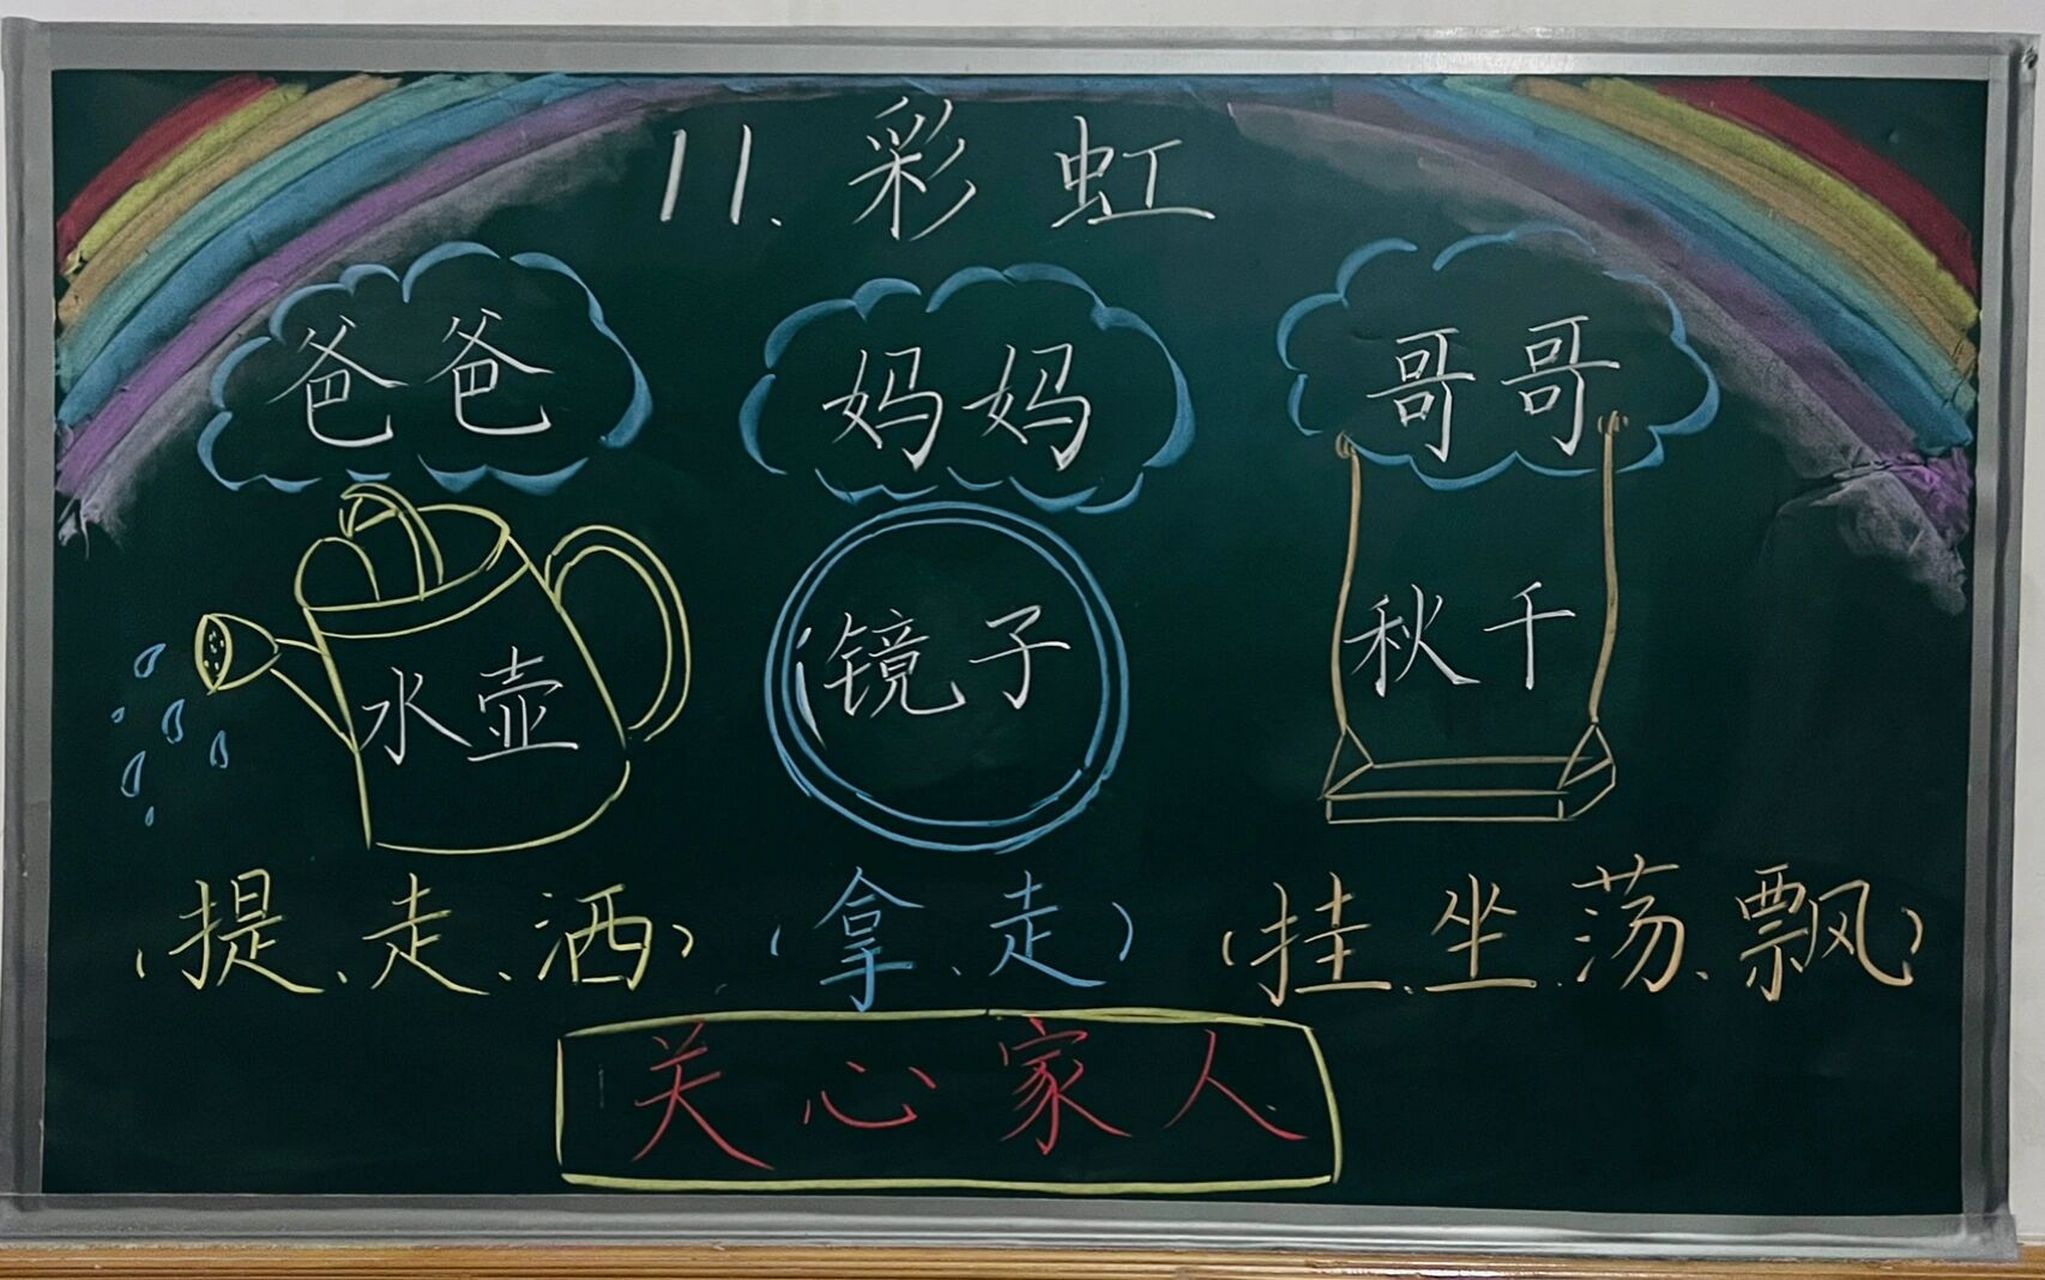 11、彩虹
爸爸 妈妈 哥哥
水壶 镜子 秋千
（提、走、洒）（拿、走）（挂、坐、荡、飘）
关心家人